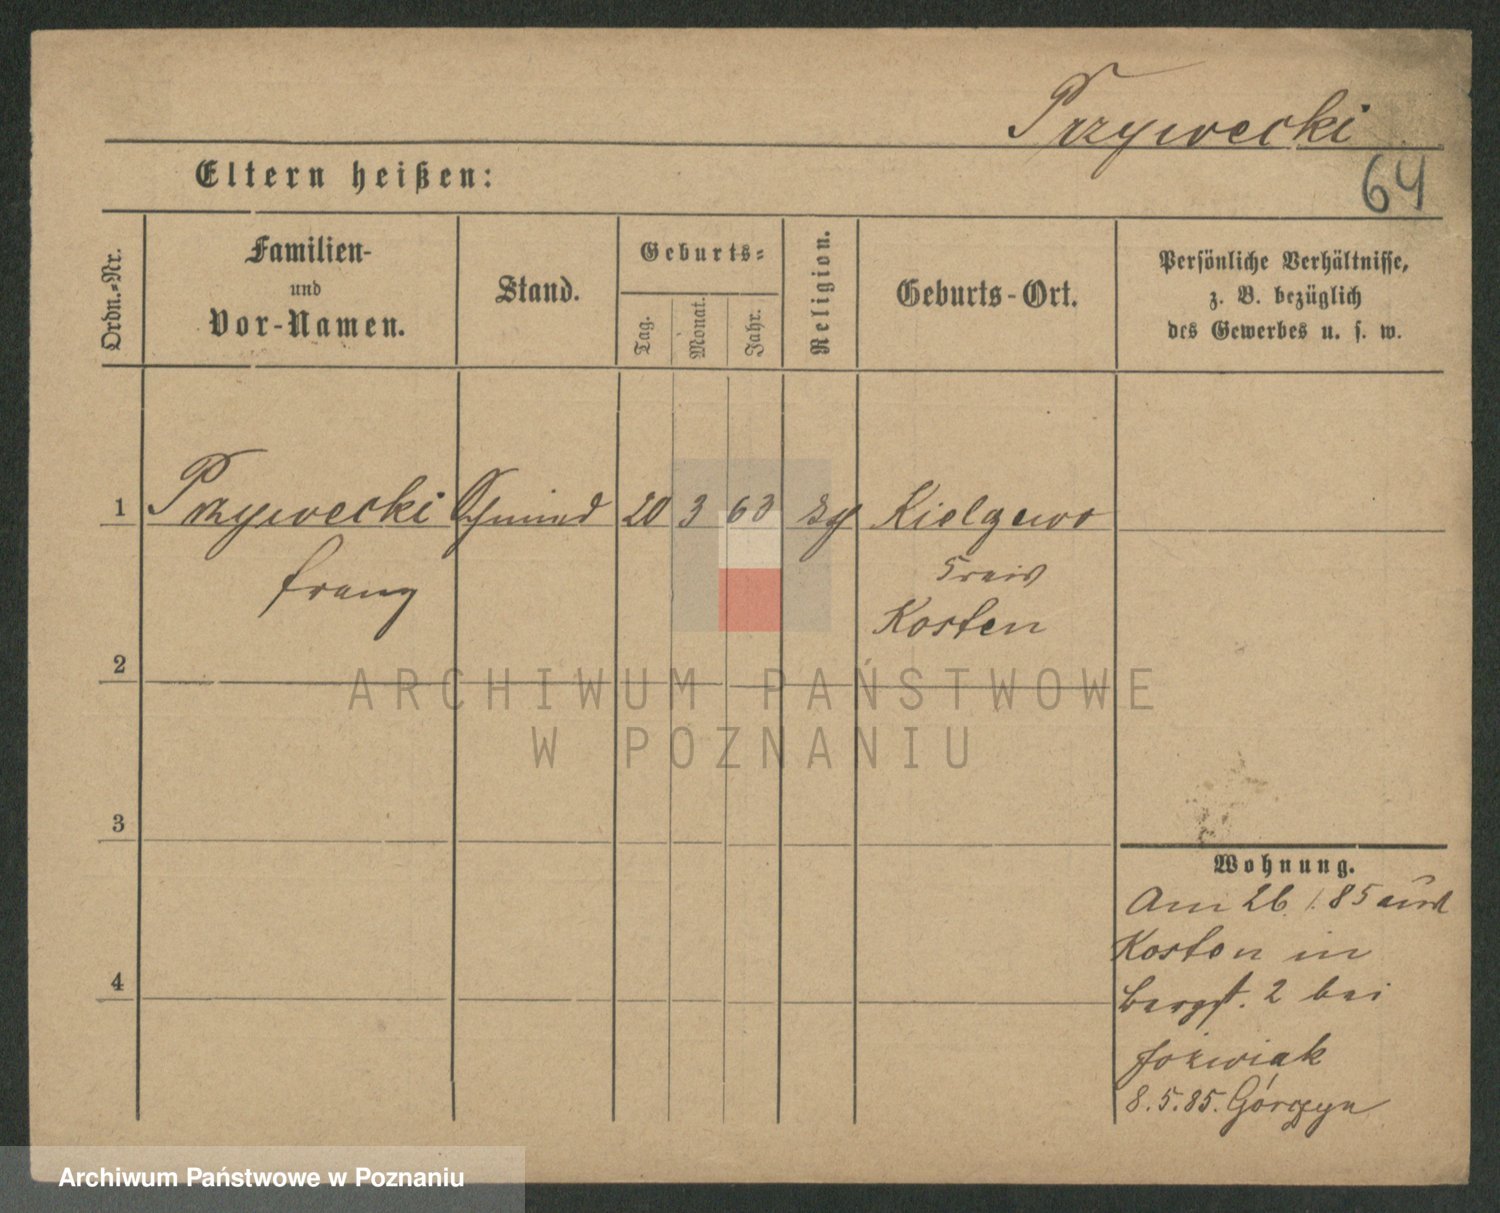 Przywecki
64
Eltern heißen:
Ordn.-Nr.
Familien-
und
Vor-Namen.
Stand.
Geburts-
Tag.
Monat.
Jahr.
Religion.
Geburts-Ort.
Persönliche Verhältnisse,
z. B. bezüglich
des Gewerbes u. s. w.
1 Przywecki Schmied 20 3 63 Kielczewo
Franz Kreis
Kosten
2
3
4
Wohnung.
Am 26. 1. 85 aus
Kosten in
Bergst. 2 bei
Jozwiak
8.5.85. Górczyn
ARCHIWUM PAŃSTWOWE
W POZNANIU
Archiwum Państwowe w Poznaniu